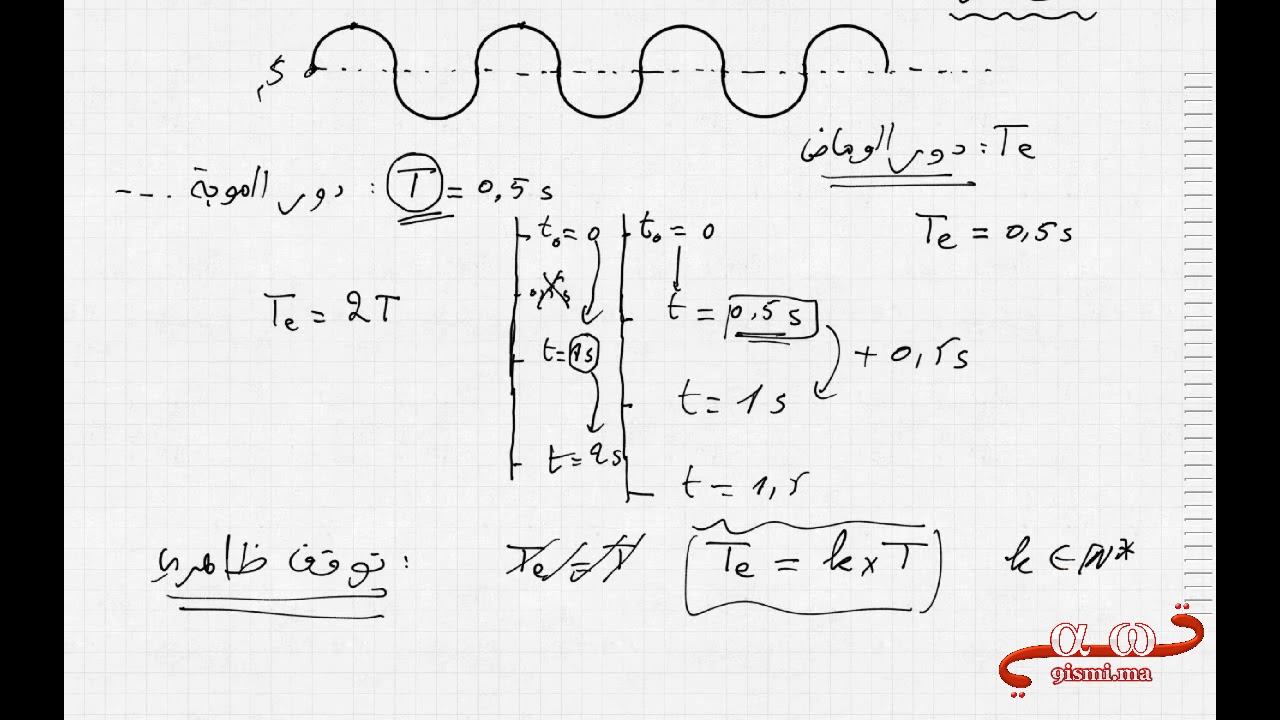 S
Te : دور الوماض
دور الموجة ... : T = 0,5 s
Te = 0,5 s
t₀ = 0
t₀ = 0
t = 0,5 s
Te = 2T
t = 1s
+ 0,5 s
t = 1 s
t = 2s
t = 1,5
توقف ظاهري :
Te = T
Te = k x T
k ∈ ℕ*
α ω
gismi.ma